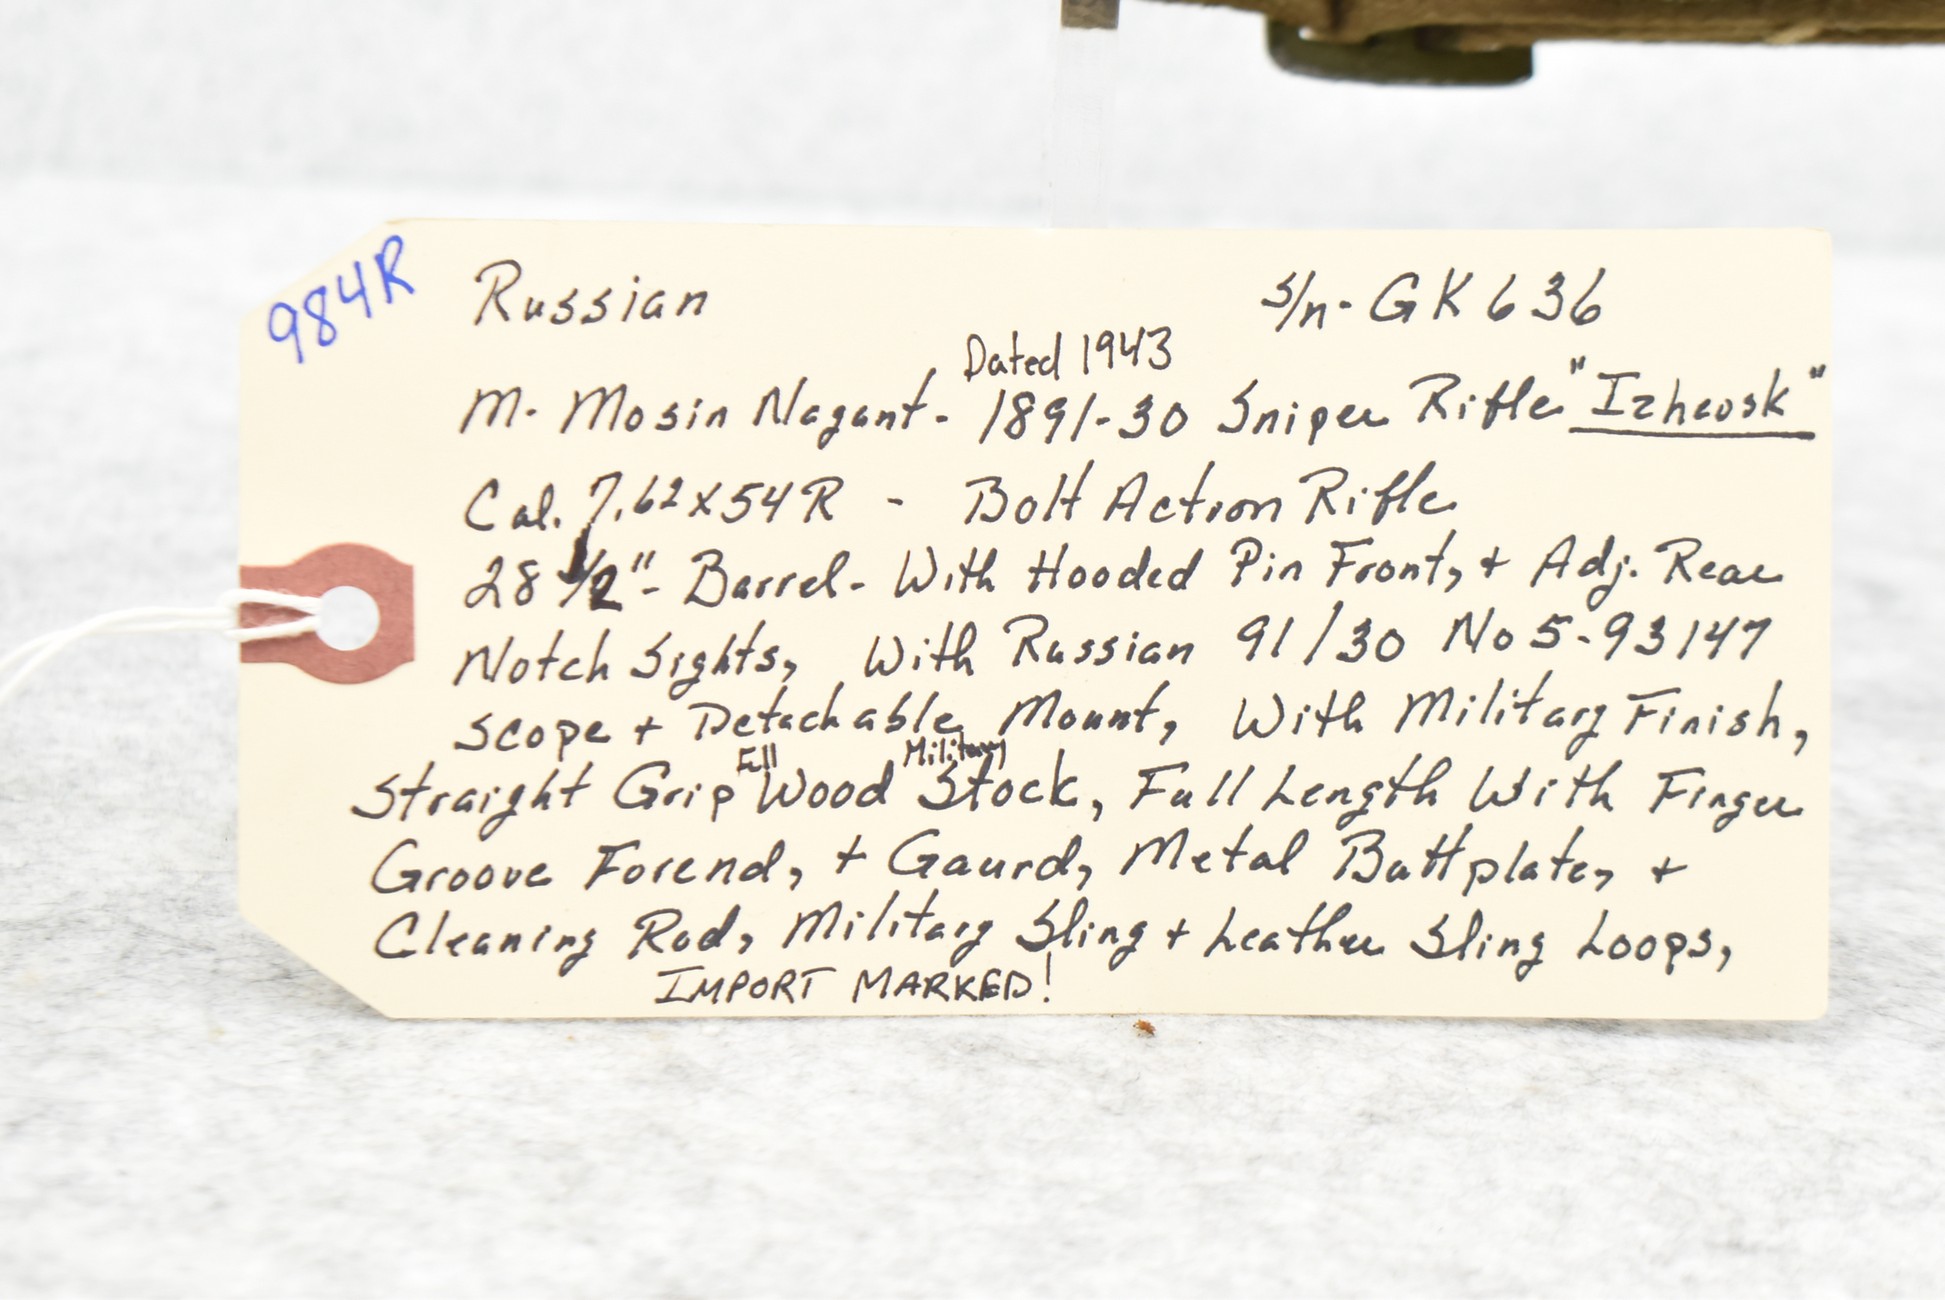 984R
Russian s/n- GK636
Dated 1943
M- Mosin Nagant- 1891-30 Sniper Rifle "Izhevsk"
Cal. 7.62x54R - Bolt Action Rifle
28 1/2"- Barrel- With Hooded Pin Front, + Adj. Rear
Notch Sights, With Russian 91/30 No 5-93147
Scope + Detachable Mount, With Military Finish,
Full Military
Straight Grip Wood Stock, Full Length With Finger
Groove Forend, + Gaurd, Metal Buttplate, +
Cleaning Rod, Military Sling + Leather Sling Loops,
IMPORT MARKED!